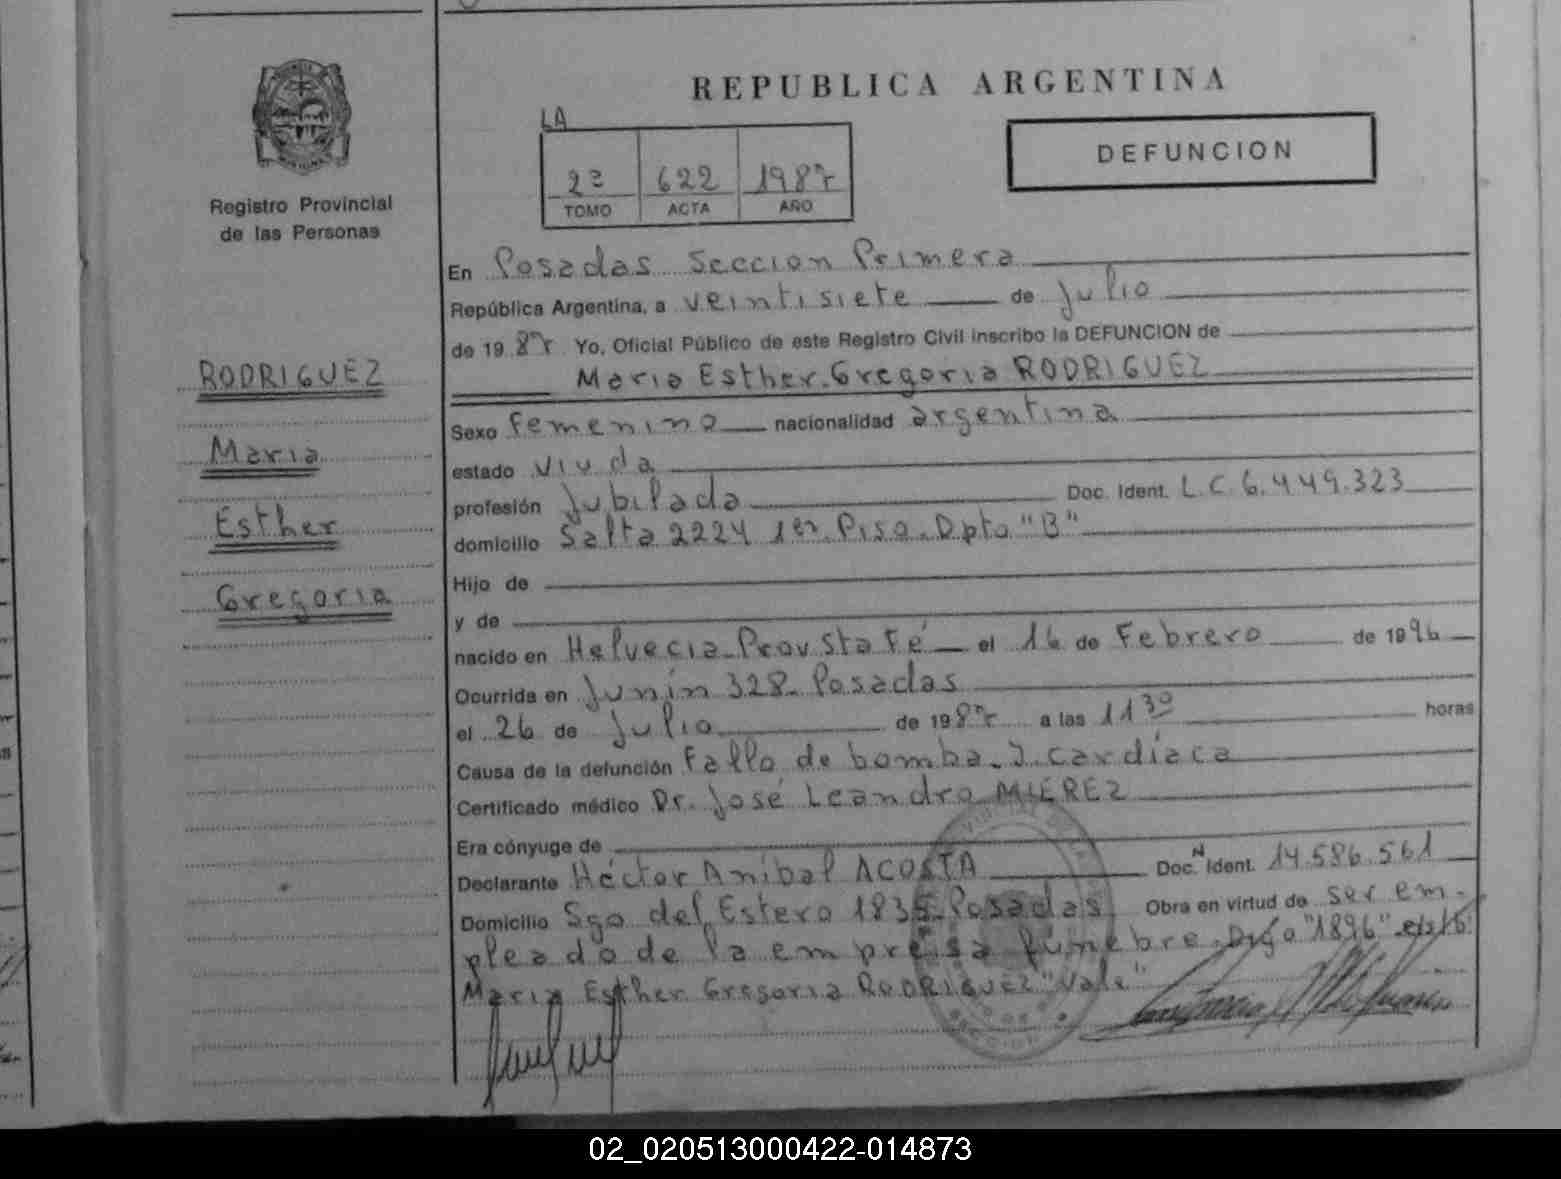 REPUBLICA ARGENTINA
DEFUNCION
LA
2º 622 1987
TOMO ACTA AÑO
Registro Provincial
de las Personas
RODRIGUEZ
Maria
Esther
Gregoria
En Posadas Seccion Primera
República Argentina, a veintisiete de Julio
de 1987 Yo, Oficial Público de este Registro Civil inscribo la DEFUNCION de
Maria Esther Gregoria RODRIGUEZ
Sexo femenino nacionalidad argentina
estado viuda
profesión Jubilada Doc. Ident. L.C. 6.449.323
domicilio Salta 2224 1er Piso Dpto "B"
Hijo de
y de
nacido en Helvecia Prov Sta Fé el 16 de Febrero de 1896
Ocurrida en Junín 328 Posadas
el 26 de Julio de 1987 a las 11 30 horas
Causa de la defunción Fallo de bomba I. cardíaca
Certificado médico Dr. José Leandro MIEREZ
Era cónyuge de
Declarante Héctor Anibal ACOSTA Doc. N Ident. 14.586.561
Domicilio Sgo del Estero 1835 Posadas Obra en virtud de ser em-
pleado de la empresa fúnebre Digo "1896"
Maria Esther Gregoria RODRIGUEZ "Vale"
02_020513000422-014873